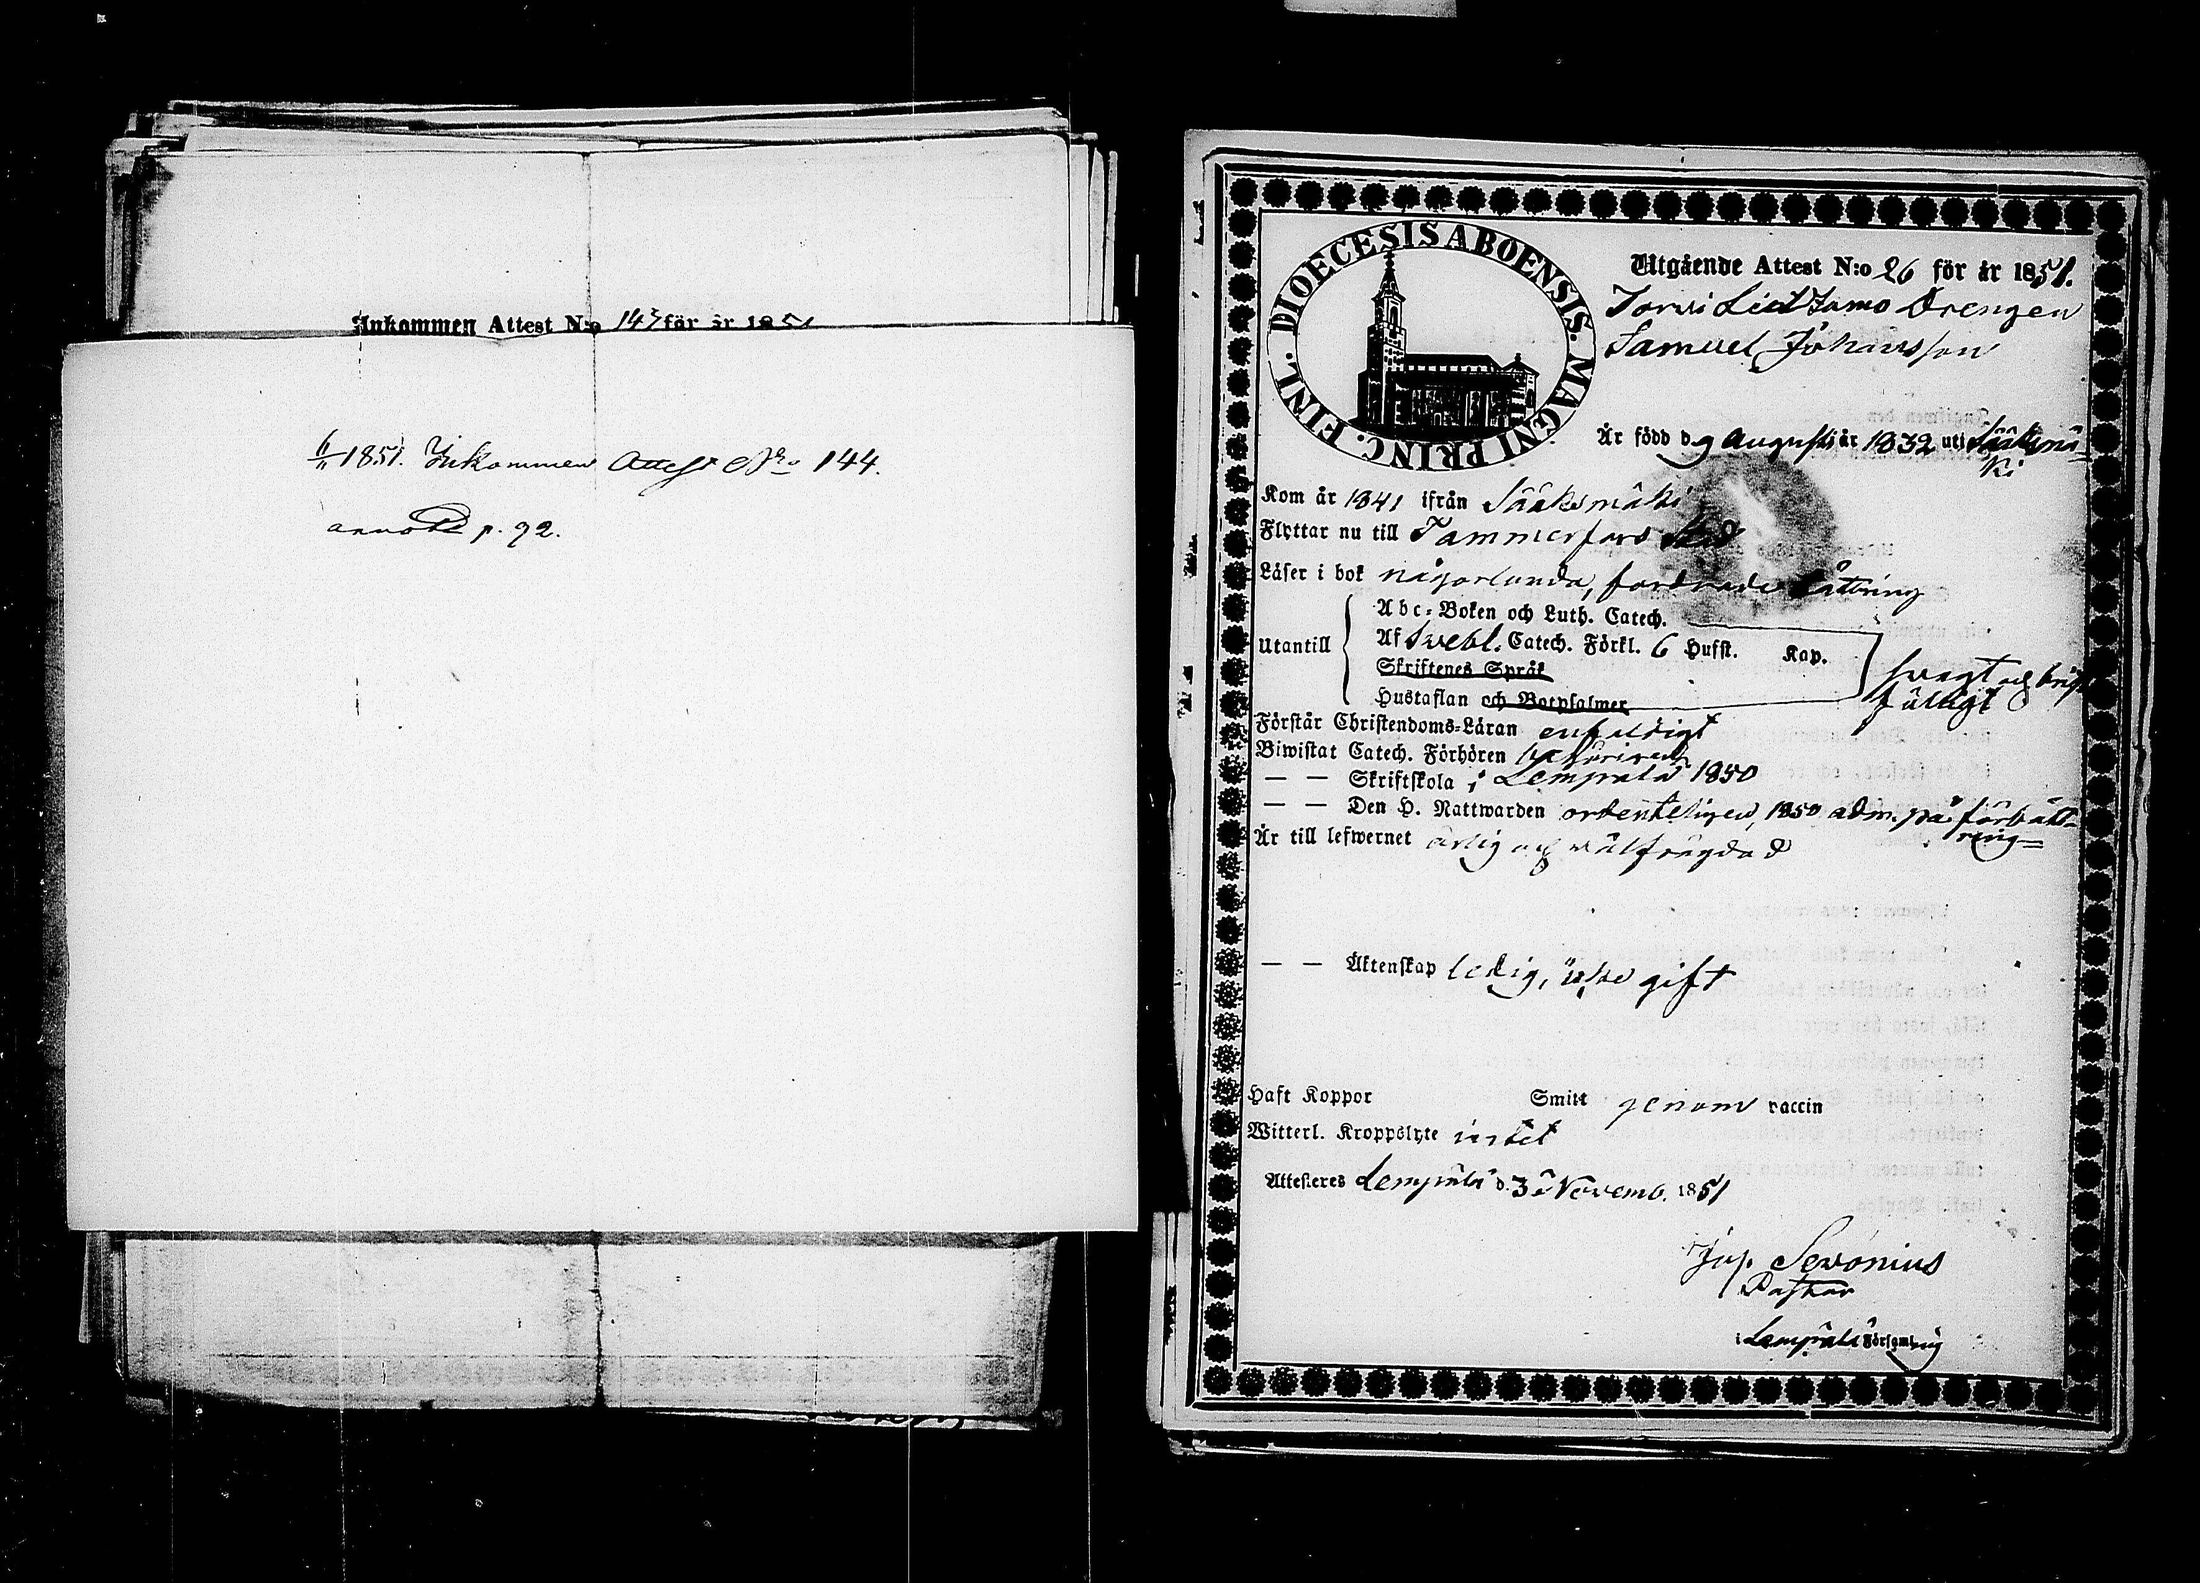 Inkommen Attest N:o 143 för år 1851
6/11 1851. Inkommen Attest No 144.
p. 92.
DIOECESIS ABOENSIS. MAGNI PRINC. FINL.
Utgående Attest N:o 26 för år 1851.
Drengen
Samuel Johansson
Är född d. 9 Augusti år 1832 uti Sääksmä=
ki
Kom år 1841 ifrån Sääksmäki
Flyttar nu till Tammerfors Stad
Läser i bok någorlunda, fordrade bättring
Utantill
Abc-Boken och Luth. Catech.
Af Svebl. Catech. Förkl. 6 Hufst. Kap.
Skriftenes Språk
Hustaflan och Botpsalmer
svagt och brist
fälligt
Förstår Christendoms-Läran enfaldigt
Biwistat Catech. Förhören
— — Skriftskola i Lempälä 1850
— — Den H. Nattwarden ordenteligen, 1850 adm. på förbätt=
ring=
Är till lefwernet ärlig och välfrägdad
— — Äktenskap ledig, icke gift
Haft Koppor Smitt genom vaccin
Witterl. Kroppslyte intet
Attesteres Lempälä d. 3 Novemb. 1851
Sevonius
Pastor
i Lempälä Församling